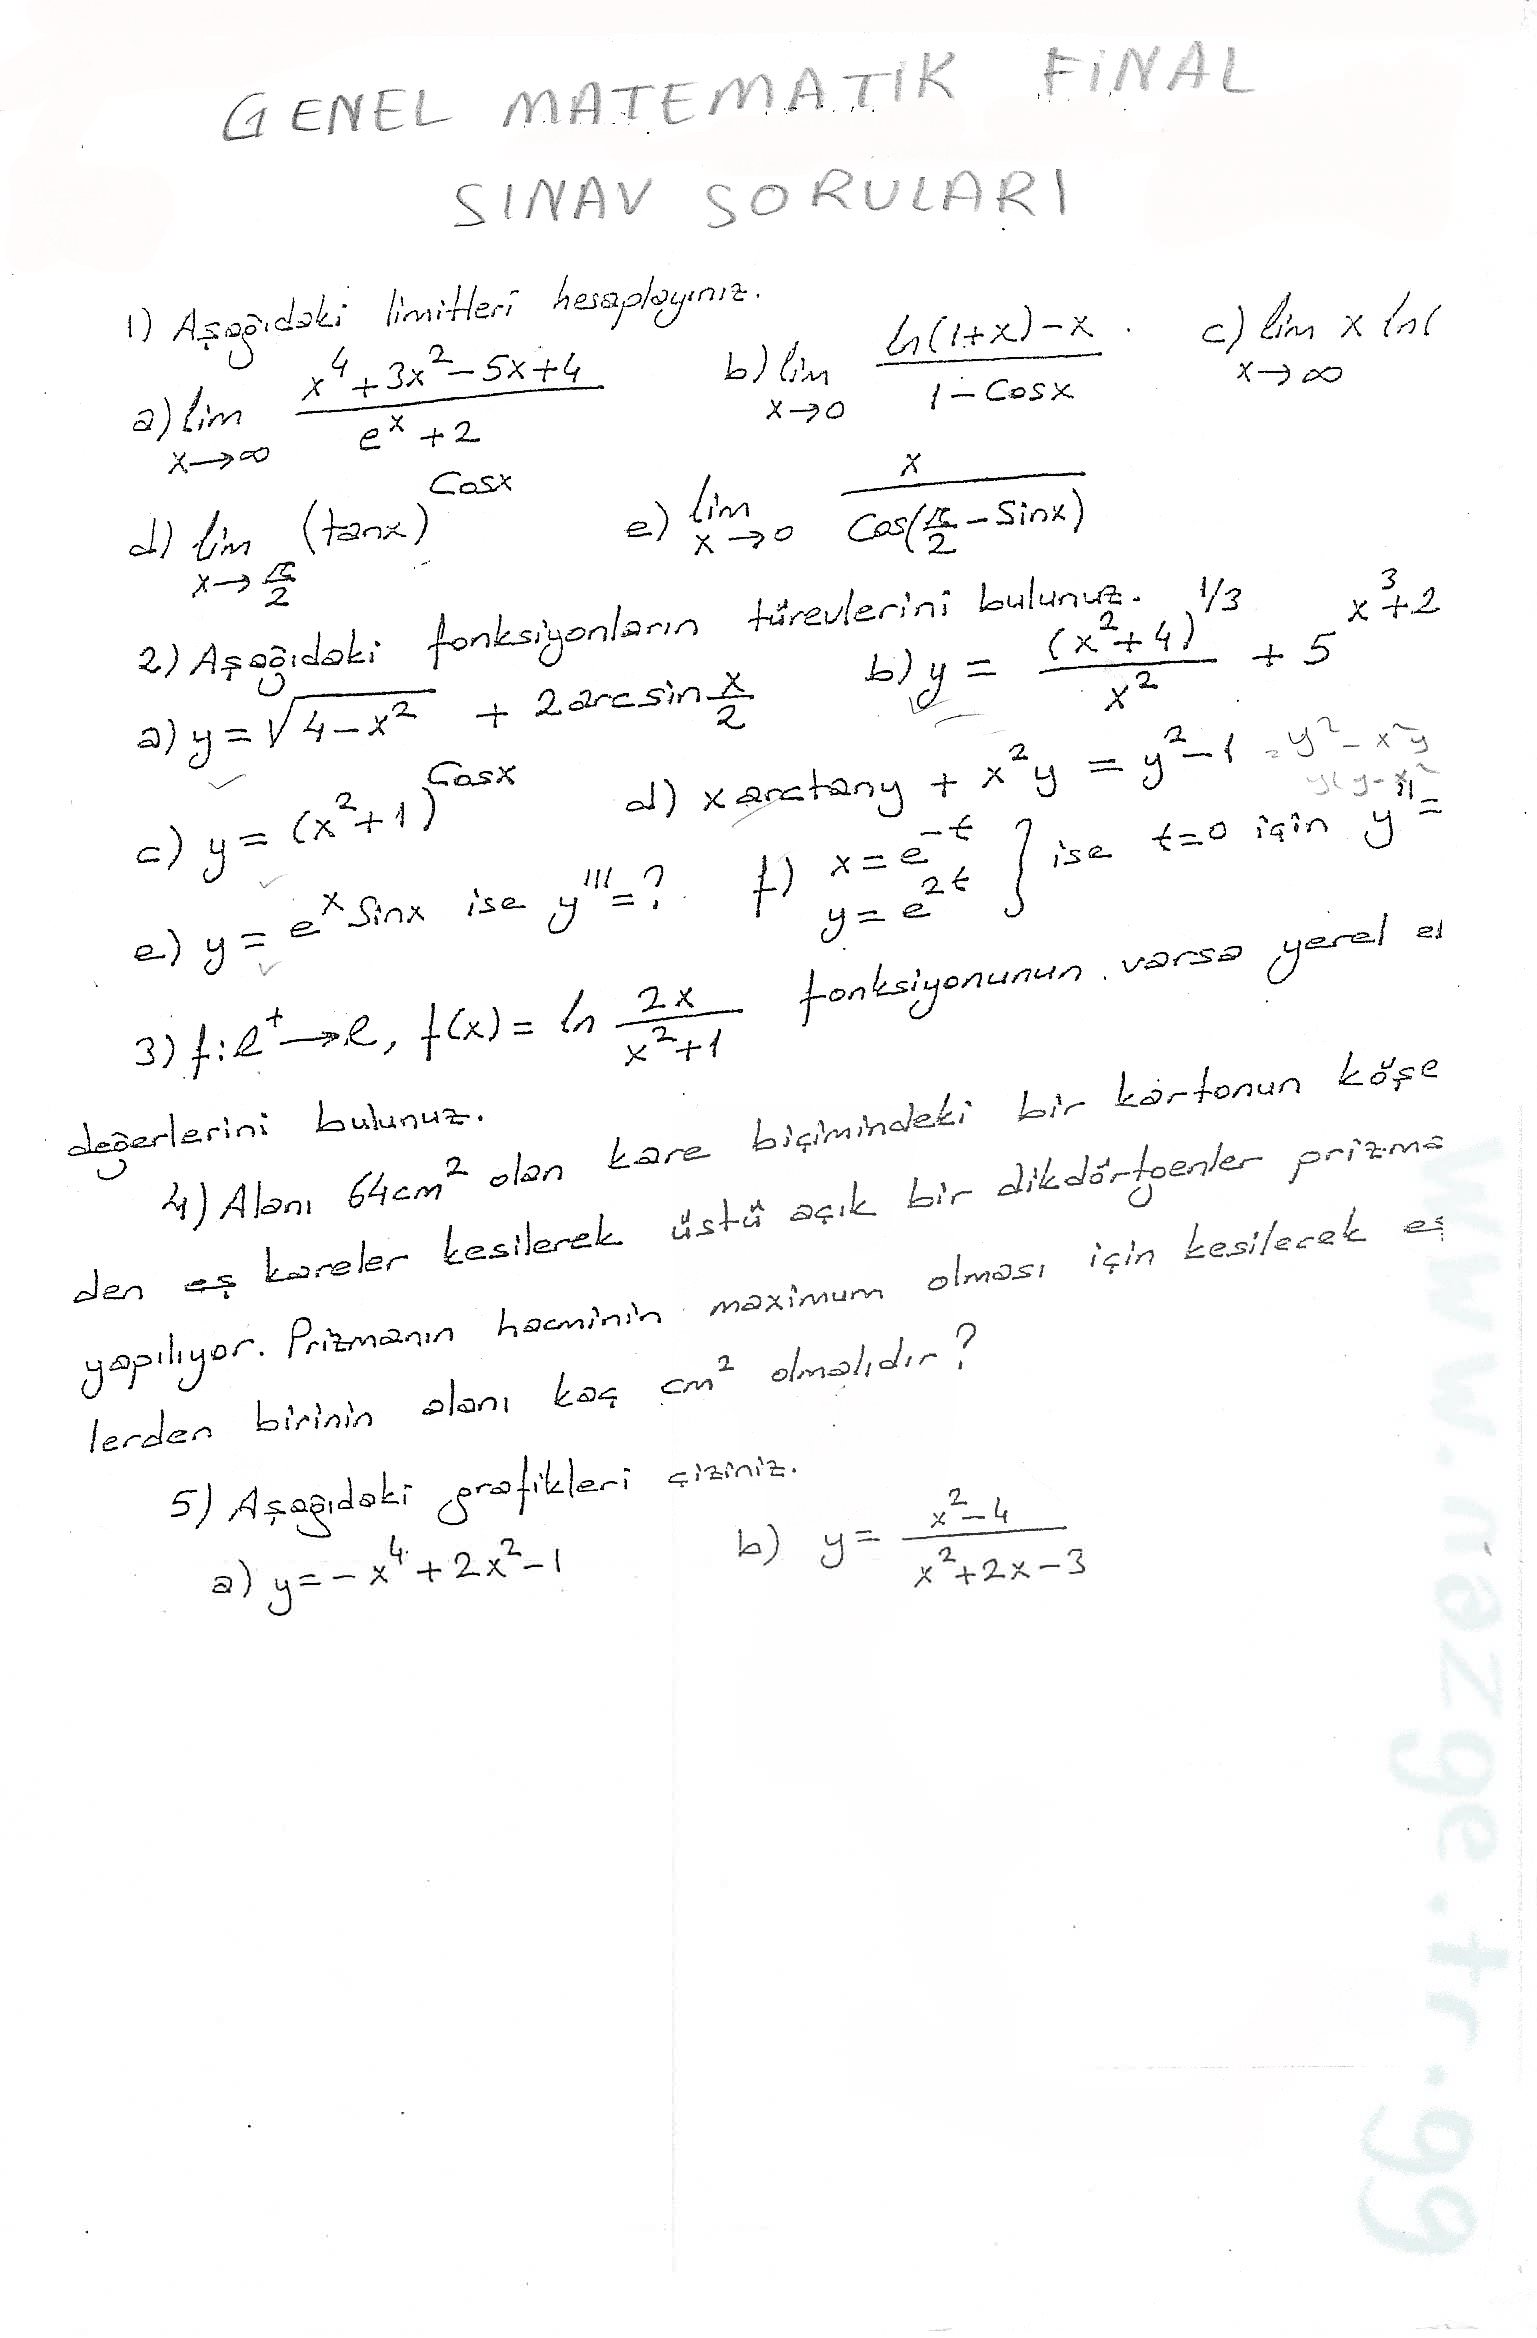 GENEL MATEMATİK FİNAL
SINAV SORULARI
1) Aşağıdaki limitleri hesaplayınız.
a) lim x→∞ (x⁴+3x²-5x+4)/(e^x+2) b) lim x→0 (ln(1+x)-x)/(1-Cosx) c) lim x→∞ x ln(
d) lim x→π/2 (tanx)^Cosx e) lim x→0 x/Cos(π/2-Sinx)
2) Aşağıdaki fonksiyonların türevlerini bulunuz.
a) y=√(4-x²) + 2arcsin x/2 b) y= (x²+4)^1/3/x² + 5^x³+2
c) y=(x²+1)^Cosx d) xarctany + x²y = y²-1 = y²-x²y
e) y=e^x Sinx ise y'''=? f) x=e^-t y=e^2t } ise t=0 için y''=
3) f:R⁺→R, f(x)= ln 2x/(x²+1) fonksiyonunun varsa yerel
değerlerini bulunuz.
4) Alanı 64cm² olan kare biçimindeki bir kartonun köşe
den eş kareler kesilerek üstü açık bir dikdörtgenler prizma
yapılıyor. Prizmanın hacminin maximum olması için kesilecek eş
lerden birinin alanı kaç cm² olmalıdır?
5) Aşağıdaki grafikleri çiziniz.
a) y=-x⁴+2x²-1 b) y= (x²-4)/(x²+2x-3)
www.mazge.tr.gg